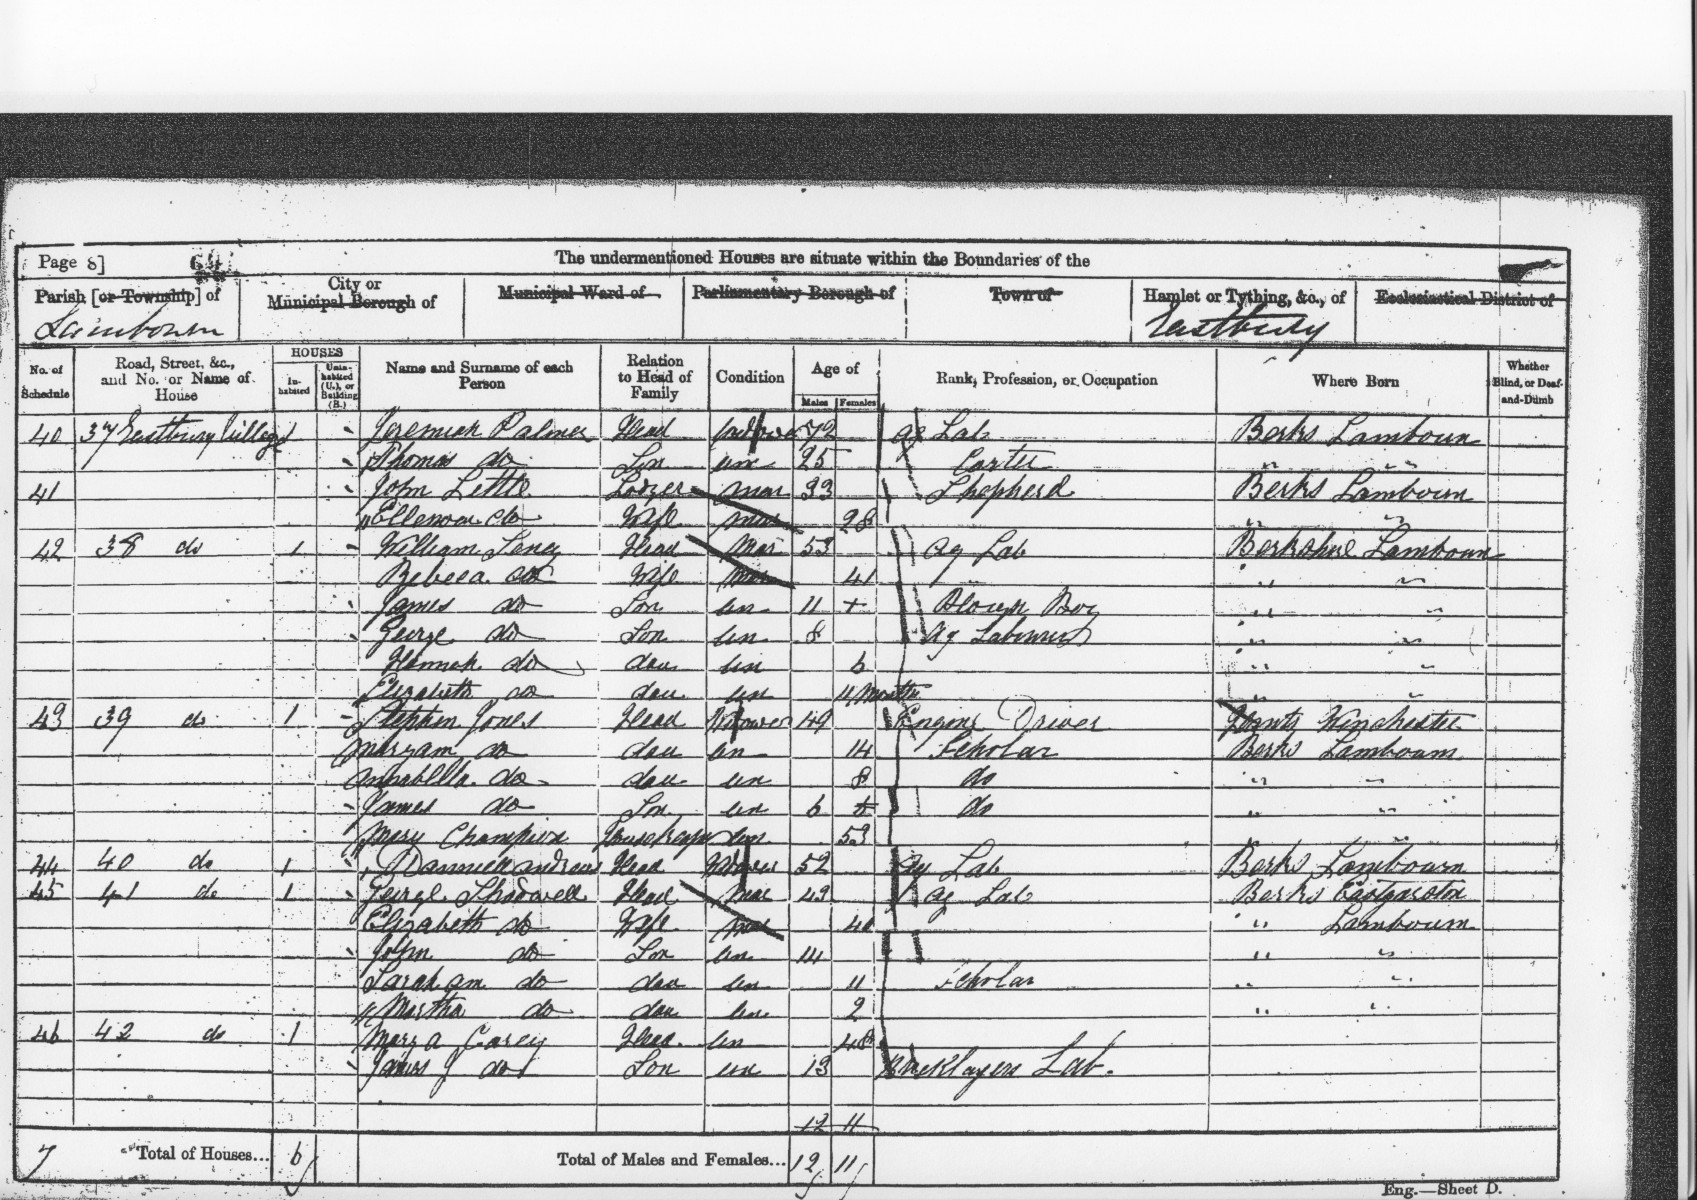 Page 8] 64
The undermentioned Houses are situate within the Boundaries of the
Parish [or Township] of
City or Municipal Borough of
Municipal Ward of
Parliamentary Borough of
Town of
Hamlet or Tything, &c., of
Ecclesiastical District of
Lambourn
Eastbury
No. of Schedule
Road, Street, &c., and No. or Name of House
HOUSES
In-habited
Unin-habited (U.), or Building (B.)
Name and Surname of each Person
Relation to Head of Family
Condition
Age of
Males
Females
Rank, Profession, or Occupation
Where Born
Whether Blind, or Deaf-and-Dumb
40 37 Eastbury Village 1 Jeremiah Palmer Head 72 Ag Lab Berks Lambourn
Thomas do Son un 25 Carter " "
41 John Little Lodger mar 33 Shepherd Berks Lambourn
do Wife mar 28 " "
42 38 do 1 William Head Mar 53 Ag Lab Berkshire Lambourn
Rebeca do Wife mar 41 " " "
James do Son un 11 Plough Boy " "
George do Son un 8 Ag Labourer " "
Hannah do dau un 6 " "
Elizabeth do dau un 11 Months " "
43 39 do 1 Stephen Jones Head Widower 49 Engine Driver Hants Winchester
Maryam do dau un 14 Scholar Berks Lambourn
Annabella do dau un 8 do " "
James do Son un 6 do " "
Mary Champion Housekeeper un 53 " "
44 40 do 1 Andrews Head Widower 52 Ag Lab Berks Lambourn
45 41 do 1 George Shadwell Head mar 43 Ag Lab Berks Eastgarston
Elizabeth do Wife mar 40 " Lambourn
John do Son un 14 " "
Sarah am do dau un 11 Scholar " "
Martha do dau un 2 " "
46 42 do 1 Mary A Carey Head un 48
James J do Son un 13 Bricklayers Lab.
12 11
7 Total of Houses... 6
Total of Males and Females... 12 11
Eng.—Sheet D.